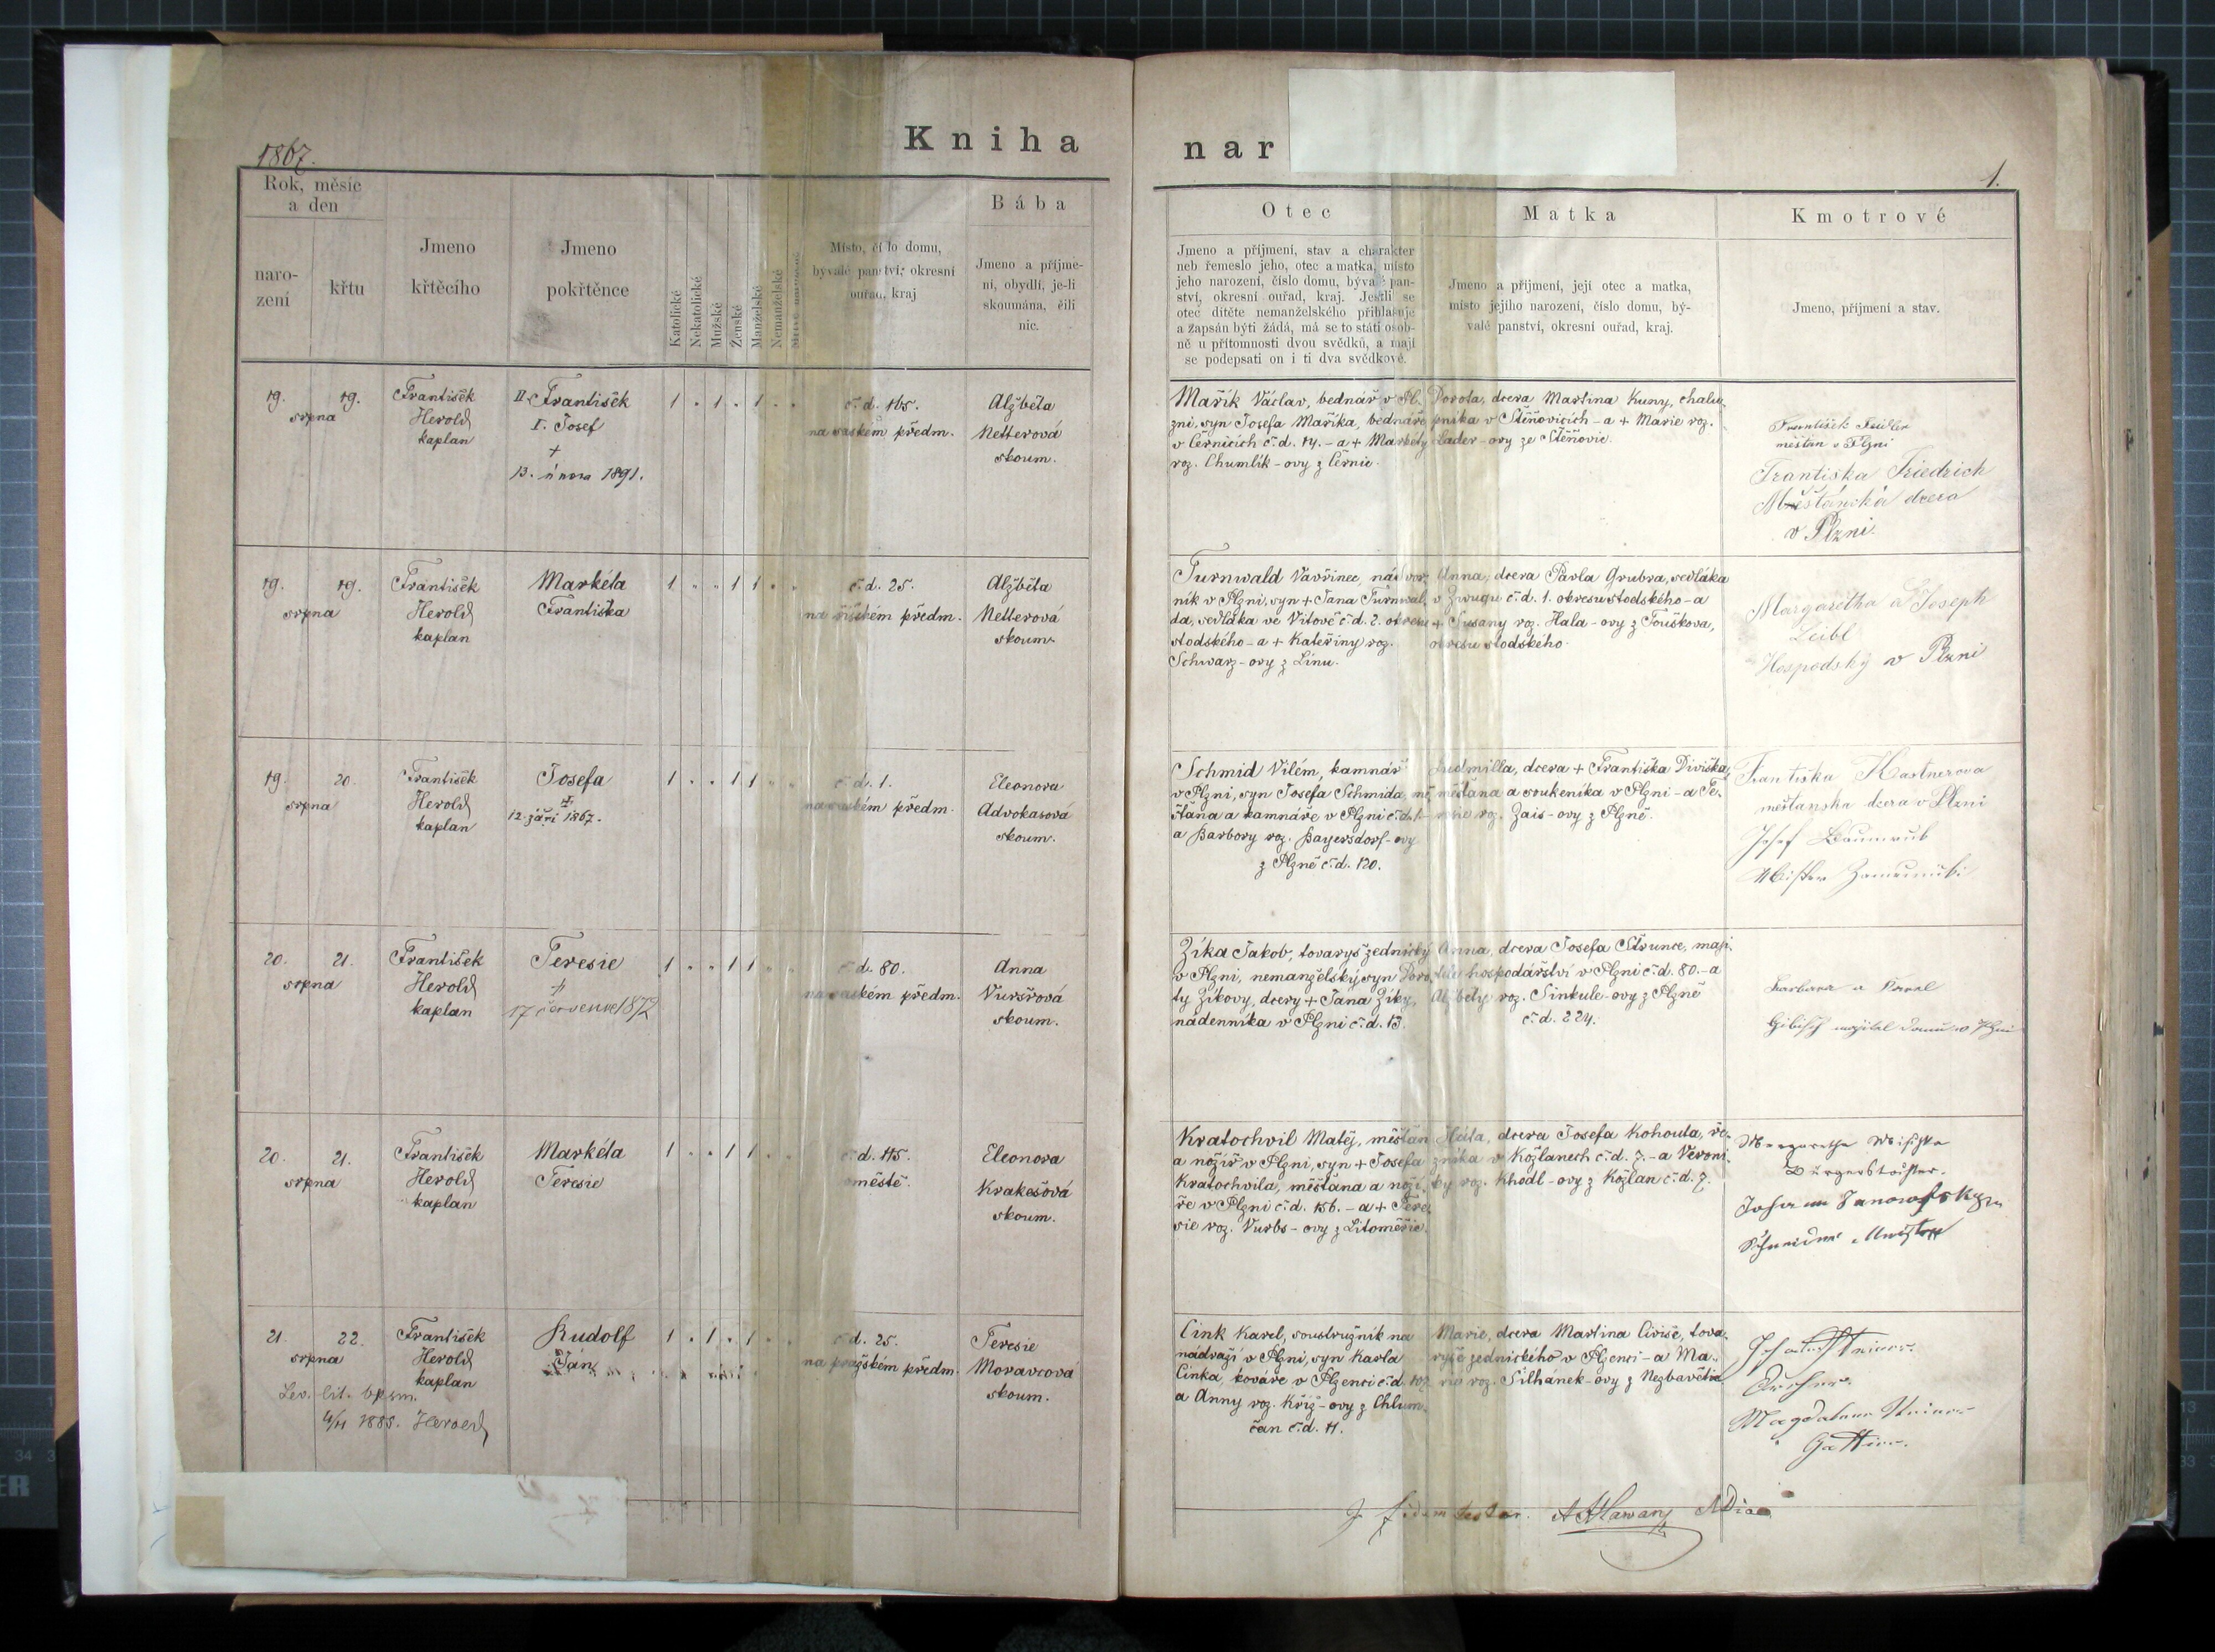 1867.
Kniha
nar
1.
Rok, měsíc
a den
naro-
zení
křtu
Jmeno
křtěcího
Jmeno
pokřtěnce
Katolické
Nekatolické
Mužské
Ženské
Manželské
Nemanželské
Místo, čí lo domu,
bývalé panství, okresní
ouřad, kraj
Bába
Jmeno a příjme-
ní, obydlí, je-li
skoumána, čili
nic.
Otec
Jmeno a příjmení, stav a charakter
neb řemeslo jeho, otec a matka, místo
jeho narození, číslo domu, bývalé pan-
ství, okresní ouřad, kraj. Jestli se
otec dítěte nemanželského přihlašuje
a zapsán býti žádá, má se to státi osob-
ně u přítomnosti dvou svědků, a mají
se podepsati on i ti dva svědkové.
Matka
Jmeno a příjmení, její otec a matka,
místo jejího narození, číslo domu, bý-
valé panství, okresní ouřad, kraj.
Kmotrové
Jmeno, příjmení a stav.
19. 19.
srpna
František
Herold
kaplan
II. František
I. Josef
+
13. února 1891.
1 1 1
č. d. 165.
na saském předm.
Alžběta
Netterová
skoum.
Mařík Václav, bednář v Pl-
zni, syn Josefa Maříka, bednáře
v Černicích č. d. 14. - a + Markéty
roz. Chumlík-ovy z Černic.
Dorota, dcera Martina Kuny, chalu-
pníka v Štěňovicích - a + Marie roz.
Lader-ovy ze Štěňovic.
František Feidler
měštan v Plzni
Frantiska Friedrich
Měštánská dcera
v Plzni.
19. 19.
srpna
František
Herold
kaplan
Markéta
Františka
1 1 1
č. d. 25.
na říšském předm.
Alžběta
Netterová
skoum.
Turnwald Vavřinec, nádvor-
ník v Plzni, syn + Jana Turnwal-
da, sedláka ve Vitově č. d. 2. okresu
stodského - a + Kateřiny roz.
Schwarz-ovy z Línu.
Anna, dcera Pavla Grubra, sedláka
v Zwugu č. d. 1. okresu stodského - a
+ Susany roz. Hala-ovy z Touškova,
okresu stodského.
Margaretha a Joseph
Leibl
Hospodský v Plzni
19. 20.
srpna
František
Herold
kaplan
Josefa
+
12. září 1867.
1 1 1
č. d. 1.
na saském předm.
Eleonora
Advokasová
skoum.
Schmid Vilém, kamnář
v Plzni, syn Josefa Schmida, mě-
šťana a kamnáře v Plzni č. d. 1.-
a Barbory roz. Bayersdorf-ovy
z Plzně č. d. 120.
Ludmilla, dcera + Františka Diviška,
měšťana a soukeníka v Plzni - a Te-
resie roz. Zais-ovy z Plzně.
Františka Kastnerova
měštanska dcera v Plzni
Josef Baumrub
20. 21.
srpna
František
Herold
kaplan
Teresie
+
17 července 1872
1 1 1
č. d. 80.
na saském předm.
Anna
Vuršrová
skoum.
Zíka Jakob, tovaryš zednický
v Plzni, nemanželský syn Doro-
ty Zíkovy, dcery + Jana Zíky,
nádenníka v Plzni č. d. 13.
Anna, dcera Josefa Strunce, maji-
tele hospodářství v Plzni č. d. 80. - a
Alžběty roz. Sinkule-ovy z Plzně
č. d. 224.
Barbara a Karel
Gibisch majitel domu v Plzni
20. 21.
srpna
František
Herold
kaplan
Markéta
Teresie
1 1 1
č. d. 115.
v městě.
Eleonora
Krakešová
skoum.
Kratochvil Matěj, měšťan
a nožíř v Plzni, syn + Josefa
Kratochvila, měšťana a noží-
ře v Plzni č. d. 156. - a + Tere-
sie roz. Vurbs-ovy z Litoměřic.
Háta, dcera Josefa Kohouta, ře-
zníka v Kožlanech č. d. 7. - a Veroni-
ky roz. Khodl-ovy z Kožlan č. d. 7.
Johann Janowsky
Schneider Meister
21. 22.
srpna
František
Herold
kaplan
Rudolf
Jan
1 1 1
č. d. 25.
na pražském předm.
Teresie
Moravcová
skoum.
Lev. lit. bpsm.
4/11 1885. Herold
Cink Karel, soustružník na
nádraží v Plzni, syn Karla
Cinka, kováře v Plzenci č. d. 107
a Anny roz. Kříž-ovy z Chlum-
čan č. d. 11.
Marie, dcera Martina Civiše, tova-
ryše zednického v Plzenci - a Ma-
rie roz. Šilhánek-ovy z Nezbavětic.